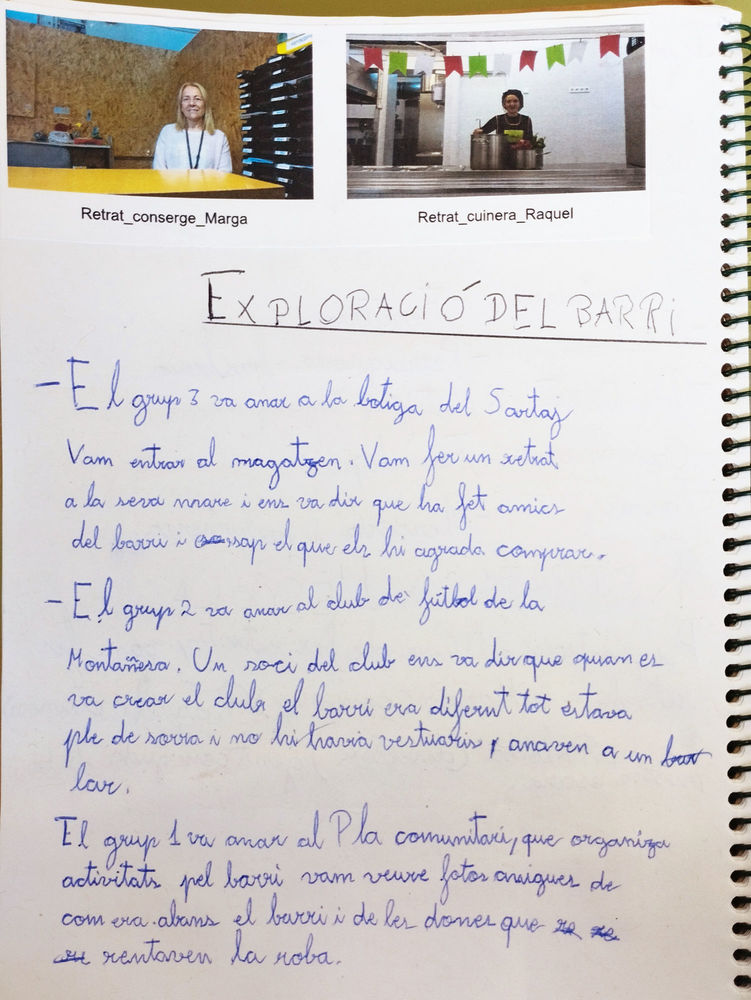 Retrat_conserge_Marga
Retrat_cuinera_Raquel
EXPLORACIÓ DEL BARRI
- El grup 3 va anar a la botiga del Sartaj
Vam entrar al magatzen. Vam fer un retrat
a la seva mare i ens va dir que ha fet amics
del barri i sap el que els hi agrada comprar.
- El grup 2 va anar al club de fútbol de la
Montañesa. Un soci del club ens va dir que quan es
va crear el club el barri era diferent tot estava
ple de sorra i no hi havia vestuaris, anaven a un
bar.
El grup 1 va anar al Pla comunitari, que organiza
activitats pel barri vam veure fotos antigues de
com era abans el barri i de les dones que
rentaven la roba.